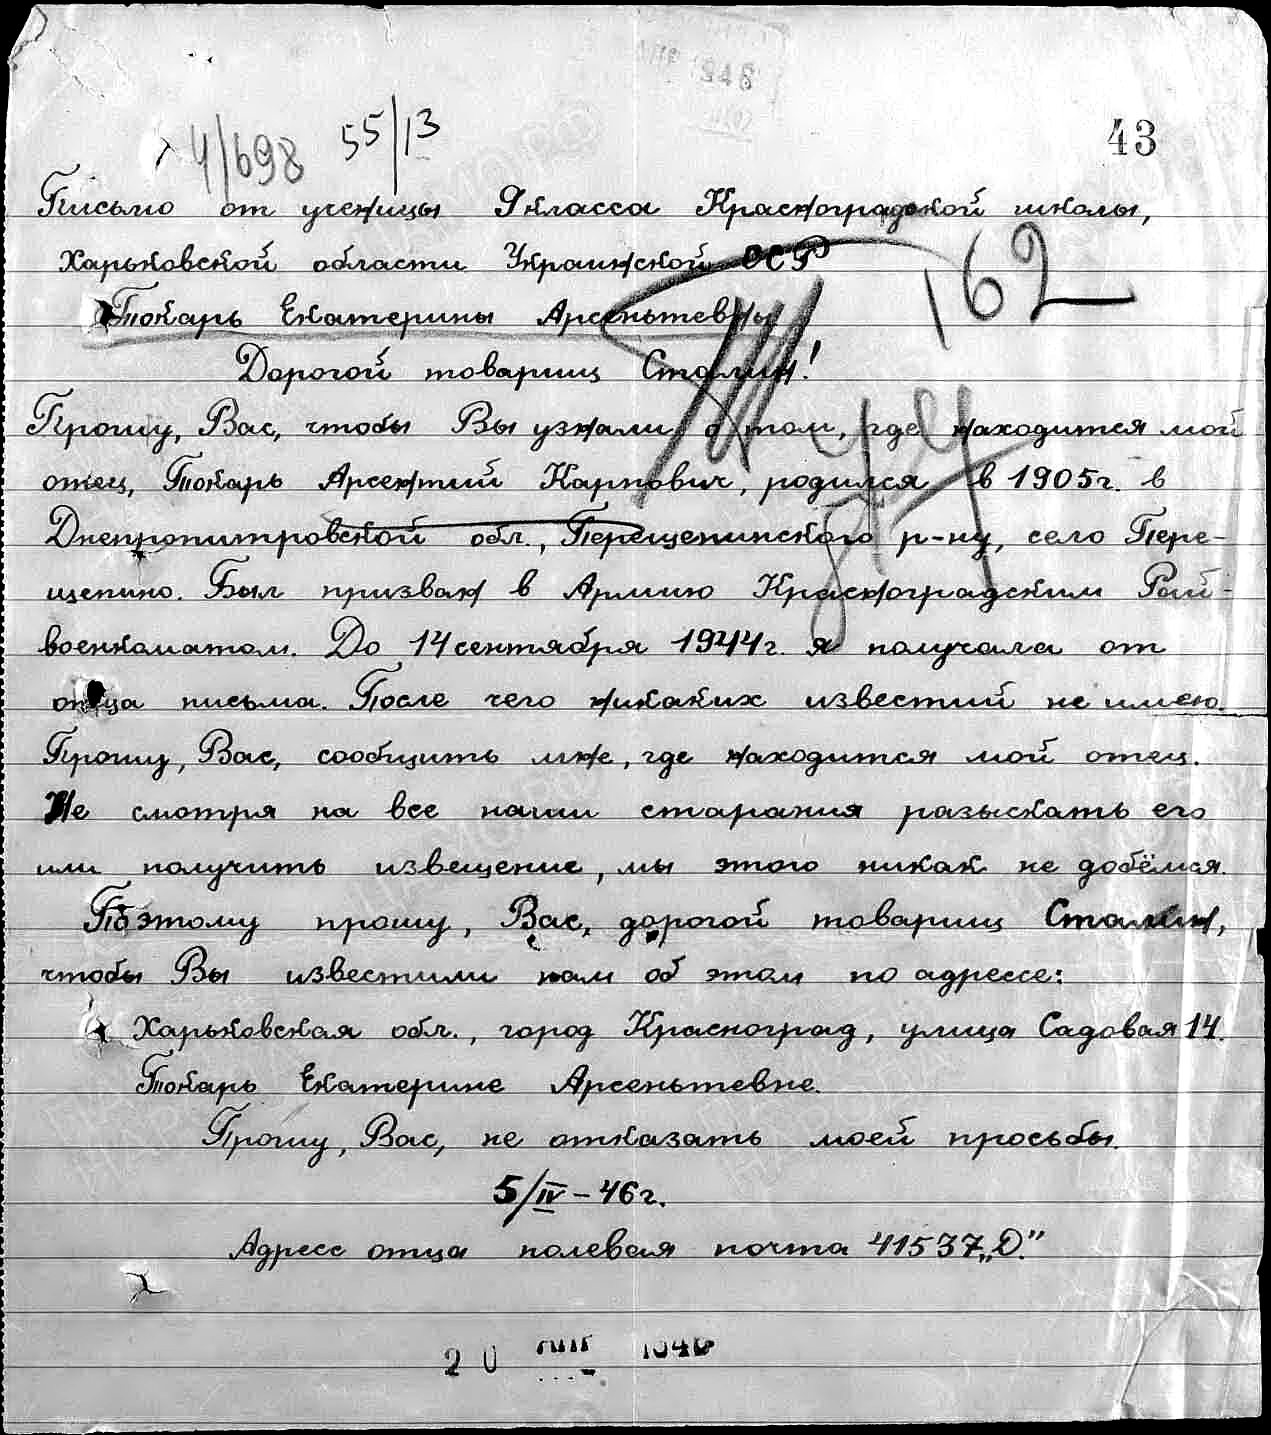 4/698 55/13
43
Письмо от ученицы 9 класса Красноградской школы,
Харьковской области Украинской ССР
162
Токарь Екатерины Арсеньтевны
Дорогой товарищ Сталин!
Прошу, Вас, чтобы Вы узнали о том, где находится мой
отец, Токарь Арсентий Карпович, родился в 1905г. в
Днепропитровской обл., Перещепинского р-ну, село Пере-
щепино. Был призван в Армию Красноградским Рай-
военкоматом. До 14 сентября 1944г. я получала от
отца письма. После чего никаких известий не имею.
Прошу, Вас, сообщить мне, где находится мой отец.
Не смотря на все наши старания разыскать его
или получить извещение, мы этого никак не добёмся.
Поэтому прошу, Вас, дорогой товарищ Сталин,
чтобы Вы известили нам об этом по адрессе:
Харьковская обл., город Красноград, улица Садовая 14.
Токарь Екатерине Арсеньтевне.
Прошу, Вас, не отказать моей просьбы.
5/IV – 46 г.
Адресс отца полевая почта 41537 „Д."
20 1946